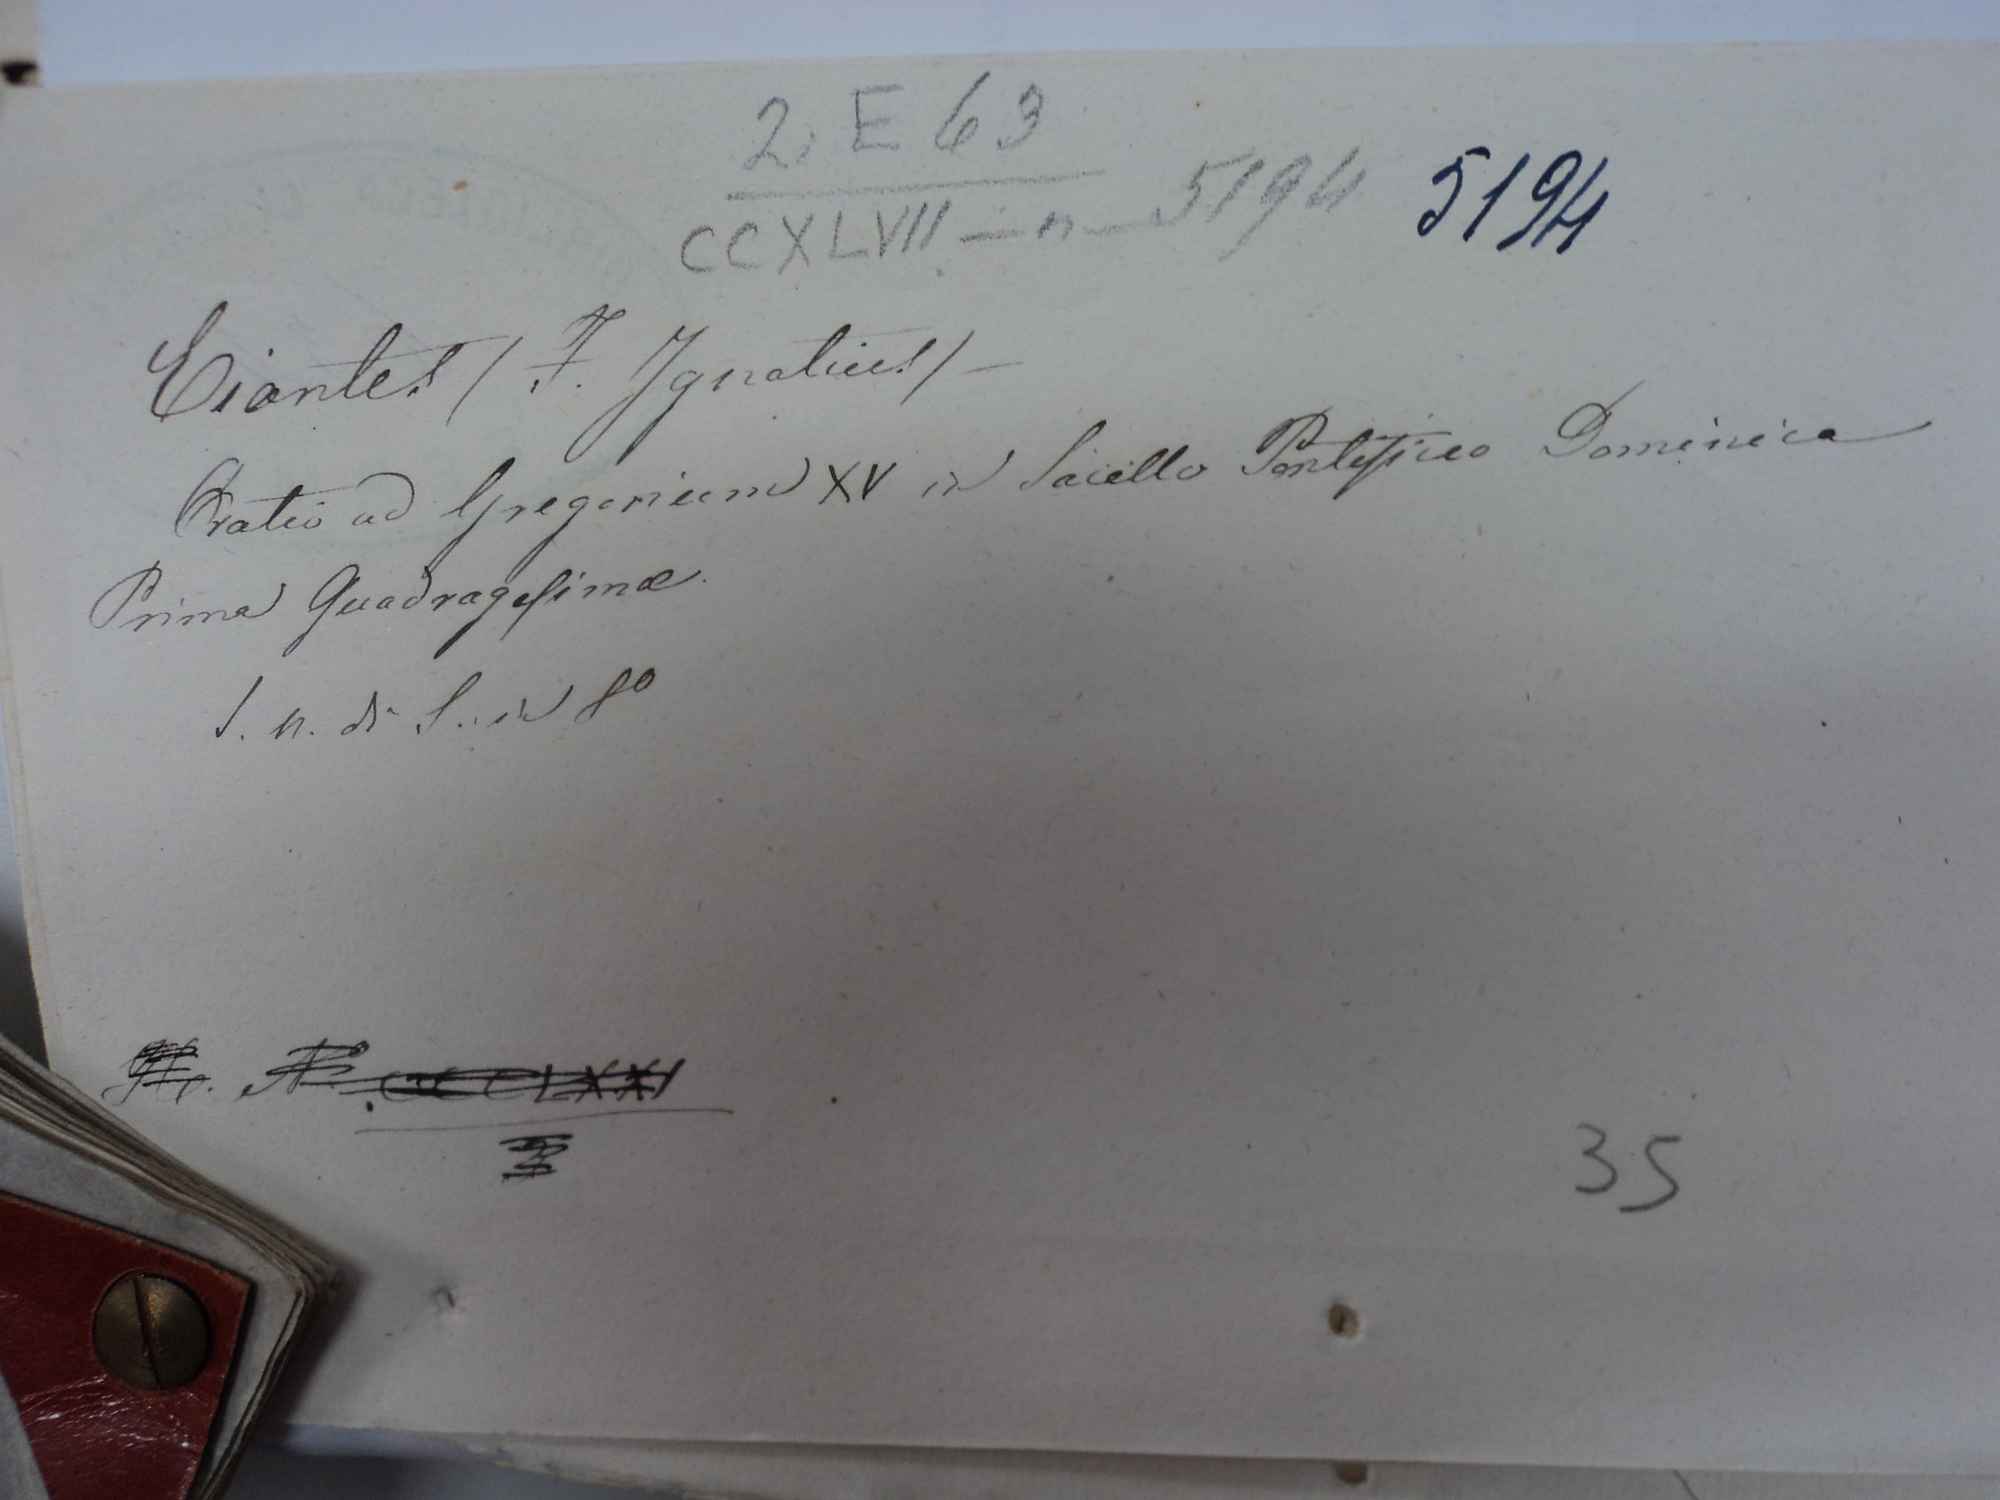 2. E 63
CCXLVII — n — 5194 5194
Ciantes (F. Ignatius) —
Oratio ad Gregorium XV in Sacello Pontificio Dominica
Prima Quadragesimæ.
S. n. di S. in 8º
CCCLXXI
3
35